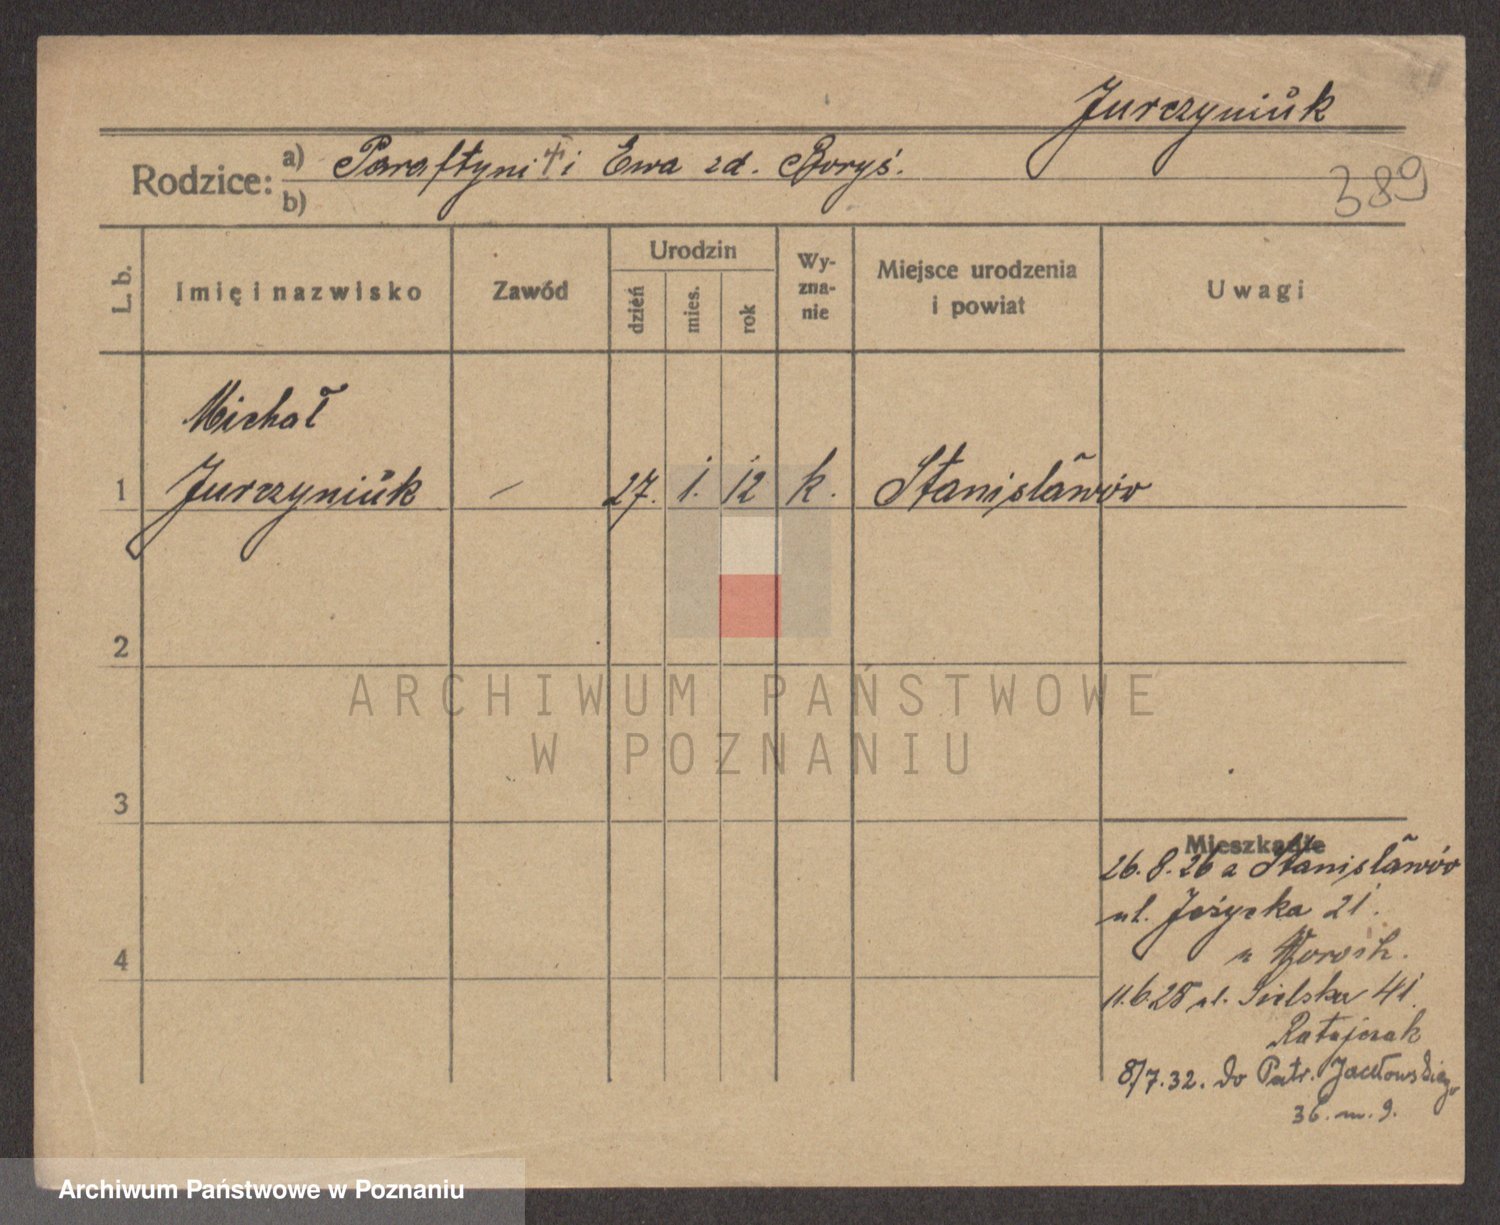 Jurczyniuk
389
Rodzice: a) Paraftyni i Ewa zd. Boryś.
b)
L. b. Imię i nazwisko Zawód Urodzin dzień mies. rok Wyznanie Miejsce urodzenia i powiat Uwagi
Michał
1 Jurczyniuk – 27. 1. 12 k. Stanisławów
2
ARCHIWUM PAŃSTWOWE
W POZNANIU
3
Mieszkanie
26.8.26 z Stanisławów
ul. Jeżycka 21.
4
11.6.28 ul. Sielska 41.
Ratajczak
8/7.32. do Patr. Jackowskiego
36. m. 9.
Archiwum Państwowe w Poznaniu